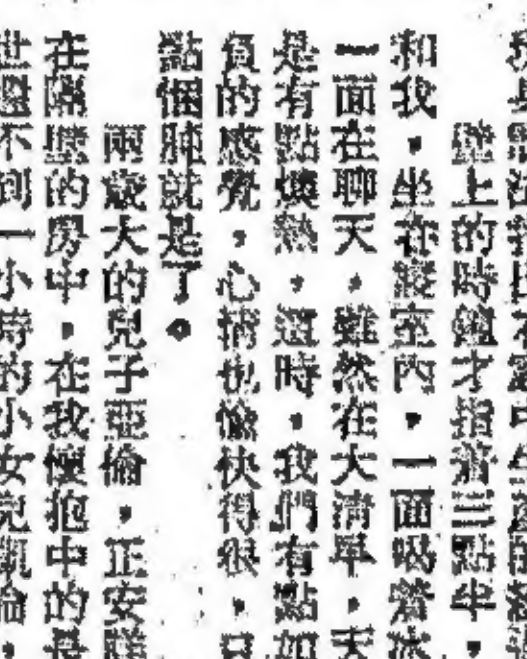 壁上的時鐘才指着三點半，
和我，坐在寢室內，一面喝着冰
一面在聊天，雖然在大清早，天
是有點燠熱，這時，我們有點如
負的感覺，心情也愉快得很，只
點悃肫就是了。
兩歲大的兒子亞倫，正安睡
在隔壁的房中，在我懷抱中的是
世還不到一小時的小女兒凱倫，